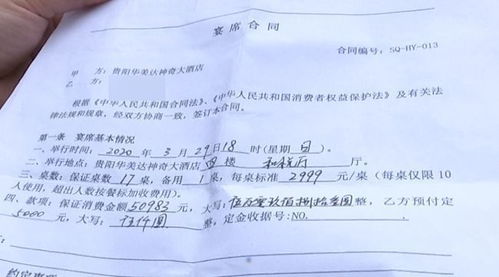 宴席合同
合同编号：SQ-HY-013
甲 方：贵阳华美达神奇大酒店
乙 方：
根据《中华人民共和国合同法》、《中华人民共和国消费者权益保护法》及有关法
律法规和规章，经双方协商一致，签订本合同。
第一条 宴席基本情况
一、举行时间：2020 年 3 月 29日18 时(星期 日)。
二、举行地点：贵阳华美达神奇大酒店 四 楼 和 厅。
三、桌数：保证桌数 17 桌，备用 1 桌，每桌标准 2999 元/桌（每桌仅限 10
人使用，超出人数按餐标加收费用）。
四、款项：保证消费金额 50983 元，大写：伍万零玖佰捌拾叁圆整，乙方预付定
5000 元，大写：伍仟圆 整，定金收据号:NO.